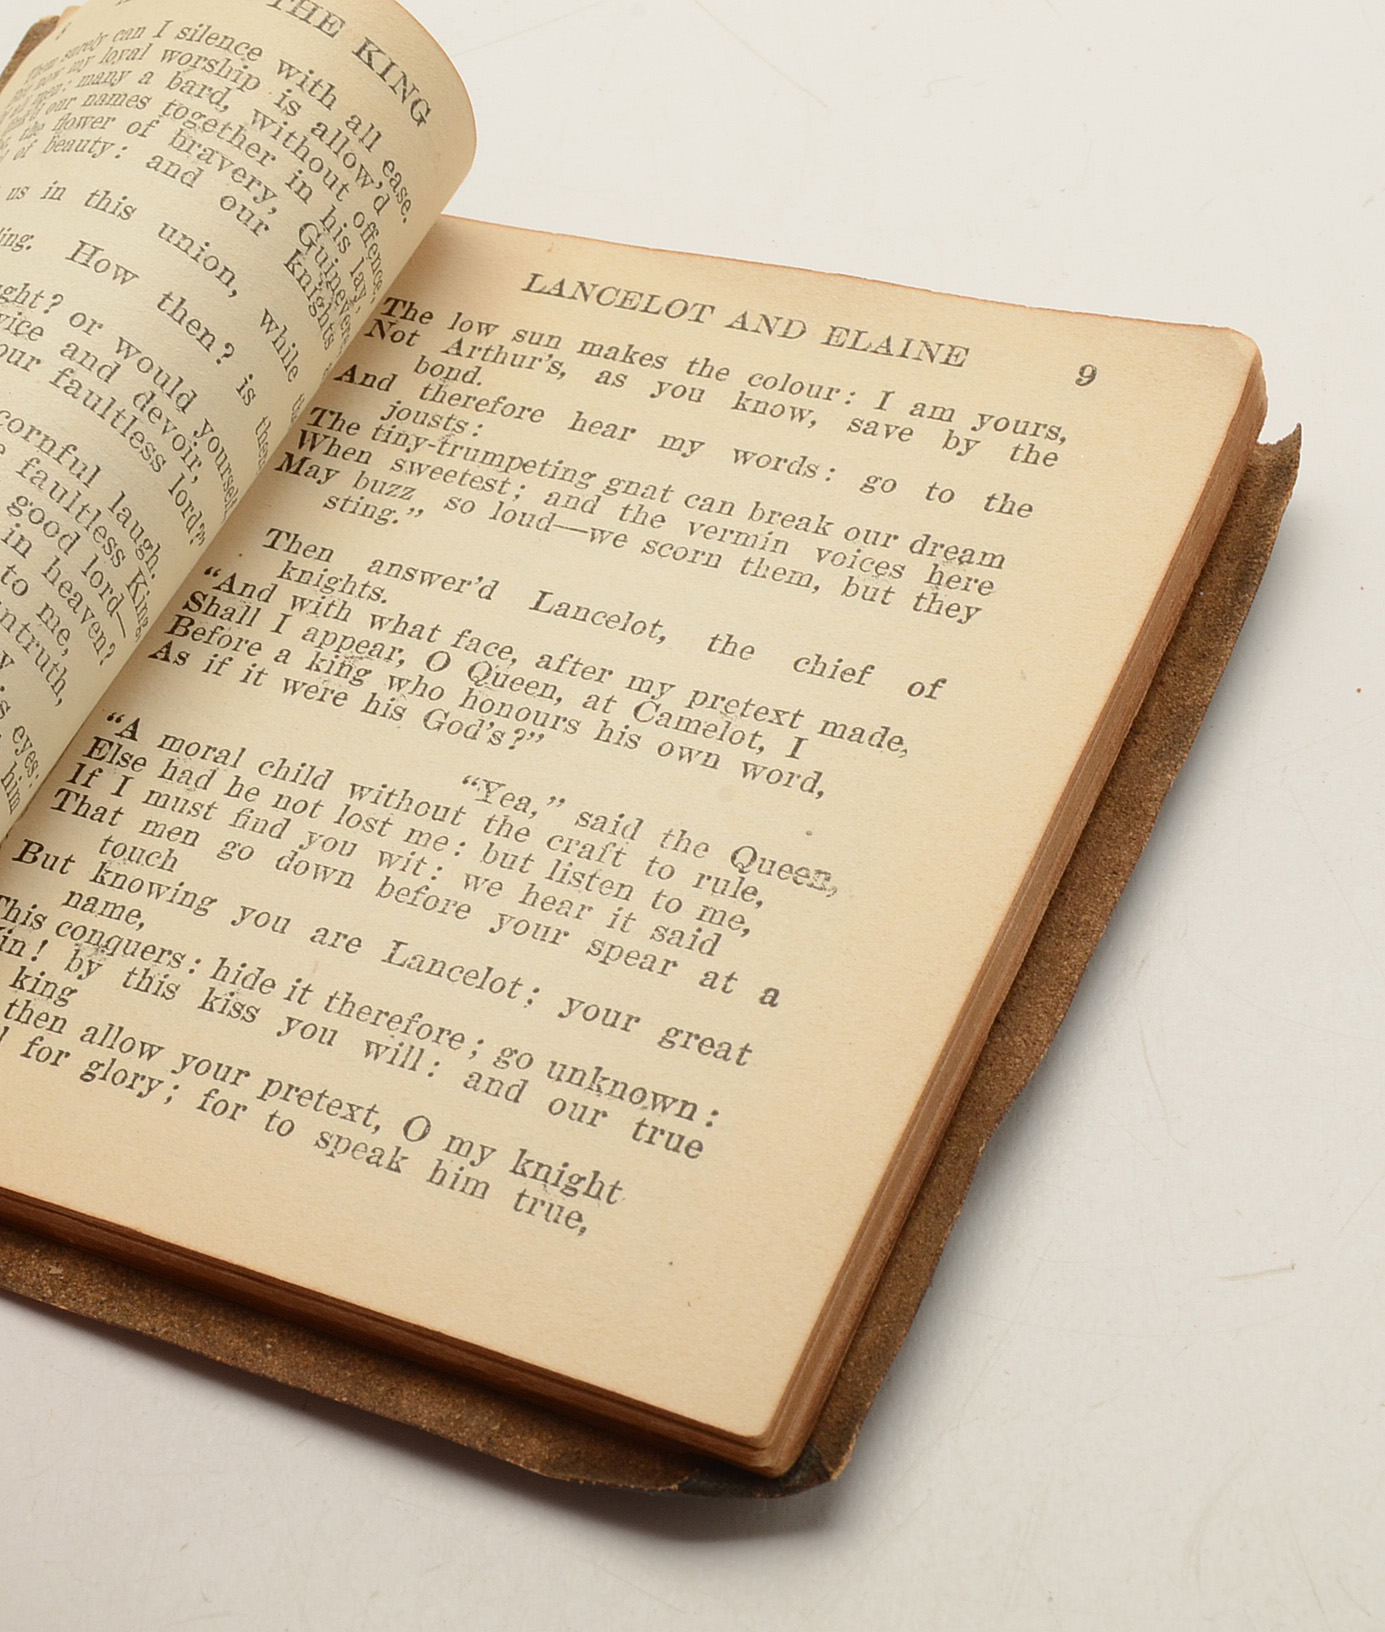 THE KING
surely can I silence with all ease.
now my loyal worship is allow'd
many a bard, without offence,
our names together in his lay,
the flower of bravery, Guinevere,
of beauty: and our knights
us in this union, while
How then? is
or would yourself
and devoir,
our faultless lord?"
scornful laugh.
faultless King,
good lord—
in heaven?
to me,
untruth,
eyes:
him
LANCELOT AND ELAINE 9
The low sun makes the colour: I am yours,
Not Arthur's, as you know, save by the
bond.
And therefore hear my words: go to the
jousts:
The tiny-trumpeting gnat can break our dream
When sweetest; and the vermin voices here
May buzz so loud—we scorn them, but they
sting."
Then answer'd Lancelot, the chief of
knights.
"And with what face, after my pretext made,
Shall I appear, O Queen, at Camelot, I
Before a king who honours his own word,
As if it were his God's?"
"Yea," said the Queen,
"A moral child without the craft to rule,
Else had he not lost me: but listen to me,
If I must find you wit: we hear it said
That men go down before your spear at a
touch
But knowing you are Lancelot; your great
name,
This conquers: hide it therefore; go unknown:
in! by this kiss you will: and our true
king
then allow your pretext, O my knight
for glory; for to speak him true,